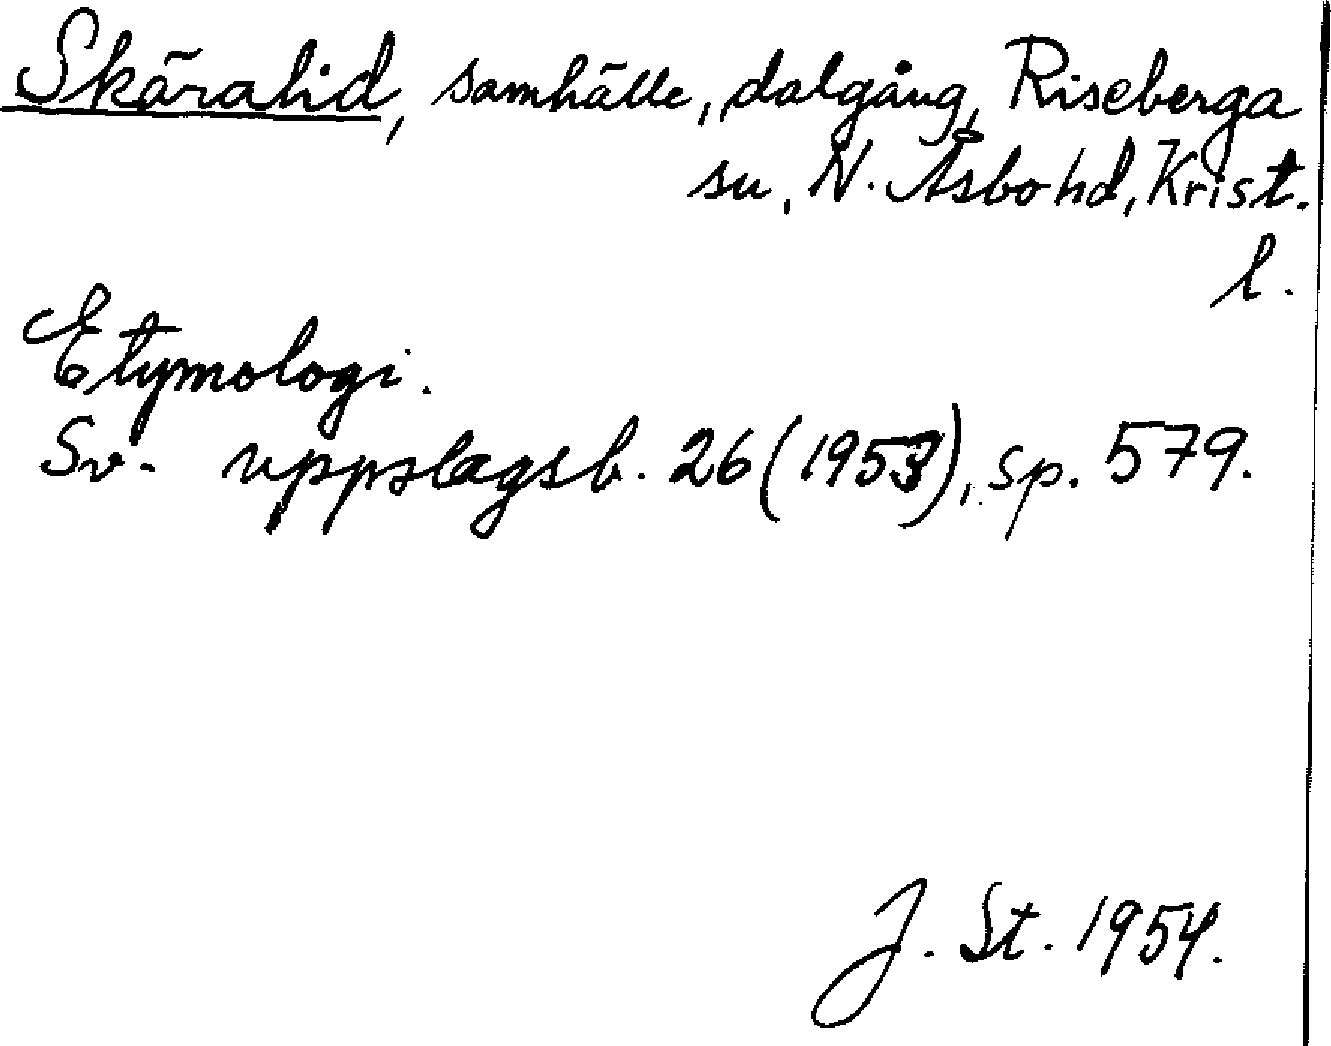 Skäralid, samhälle, dalgång, Riseberga
sn, N. Åsbo hd, Krist.
l.
Etymologi.
Sv. uppslagsb. 26 (1953), sp. 579.
J. St. 1954.